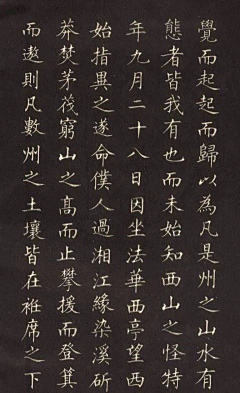 覺而起起而歸以為凡是州之山水有
態者皆我有也而未始知西山之怪特
年九月二十八日因坐法華西亭望西
始指異之遂命僕人過湘江緣染溪斫
莽焚茅筏窮山之髙而止攀援而登箕
而遨則凡數州之土壤皆在袵席之下